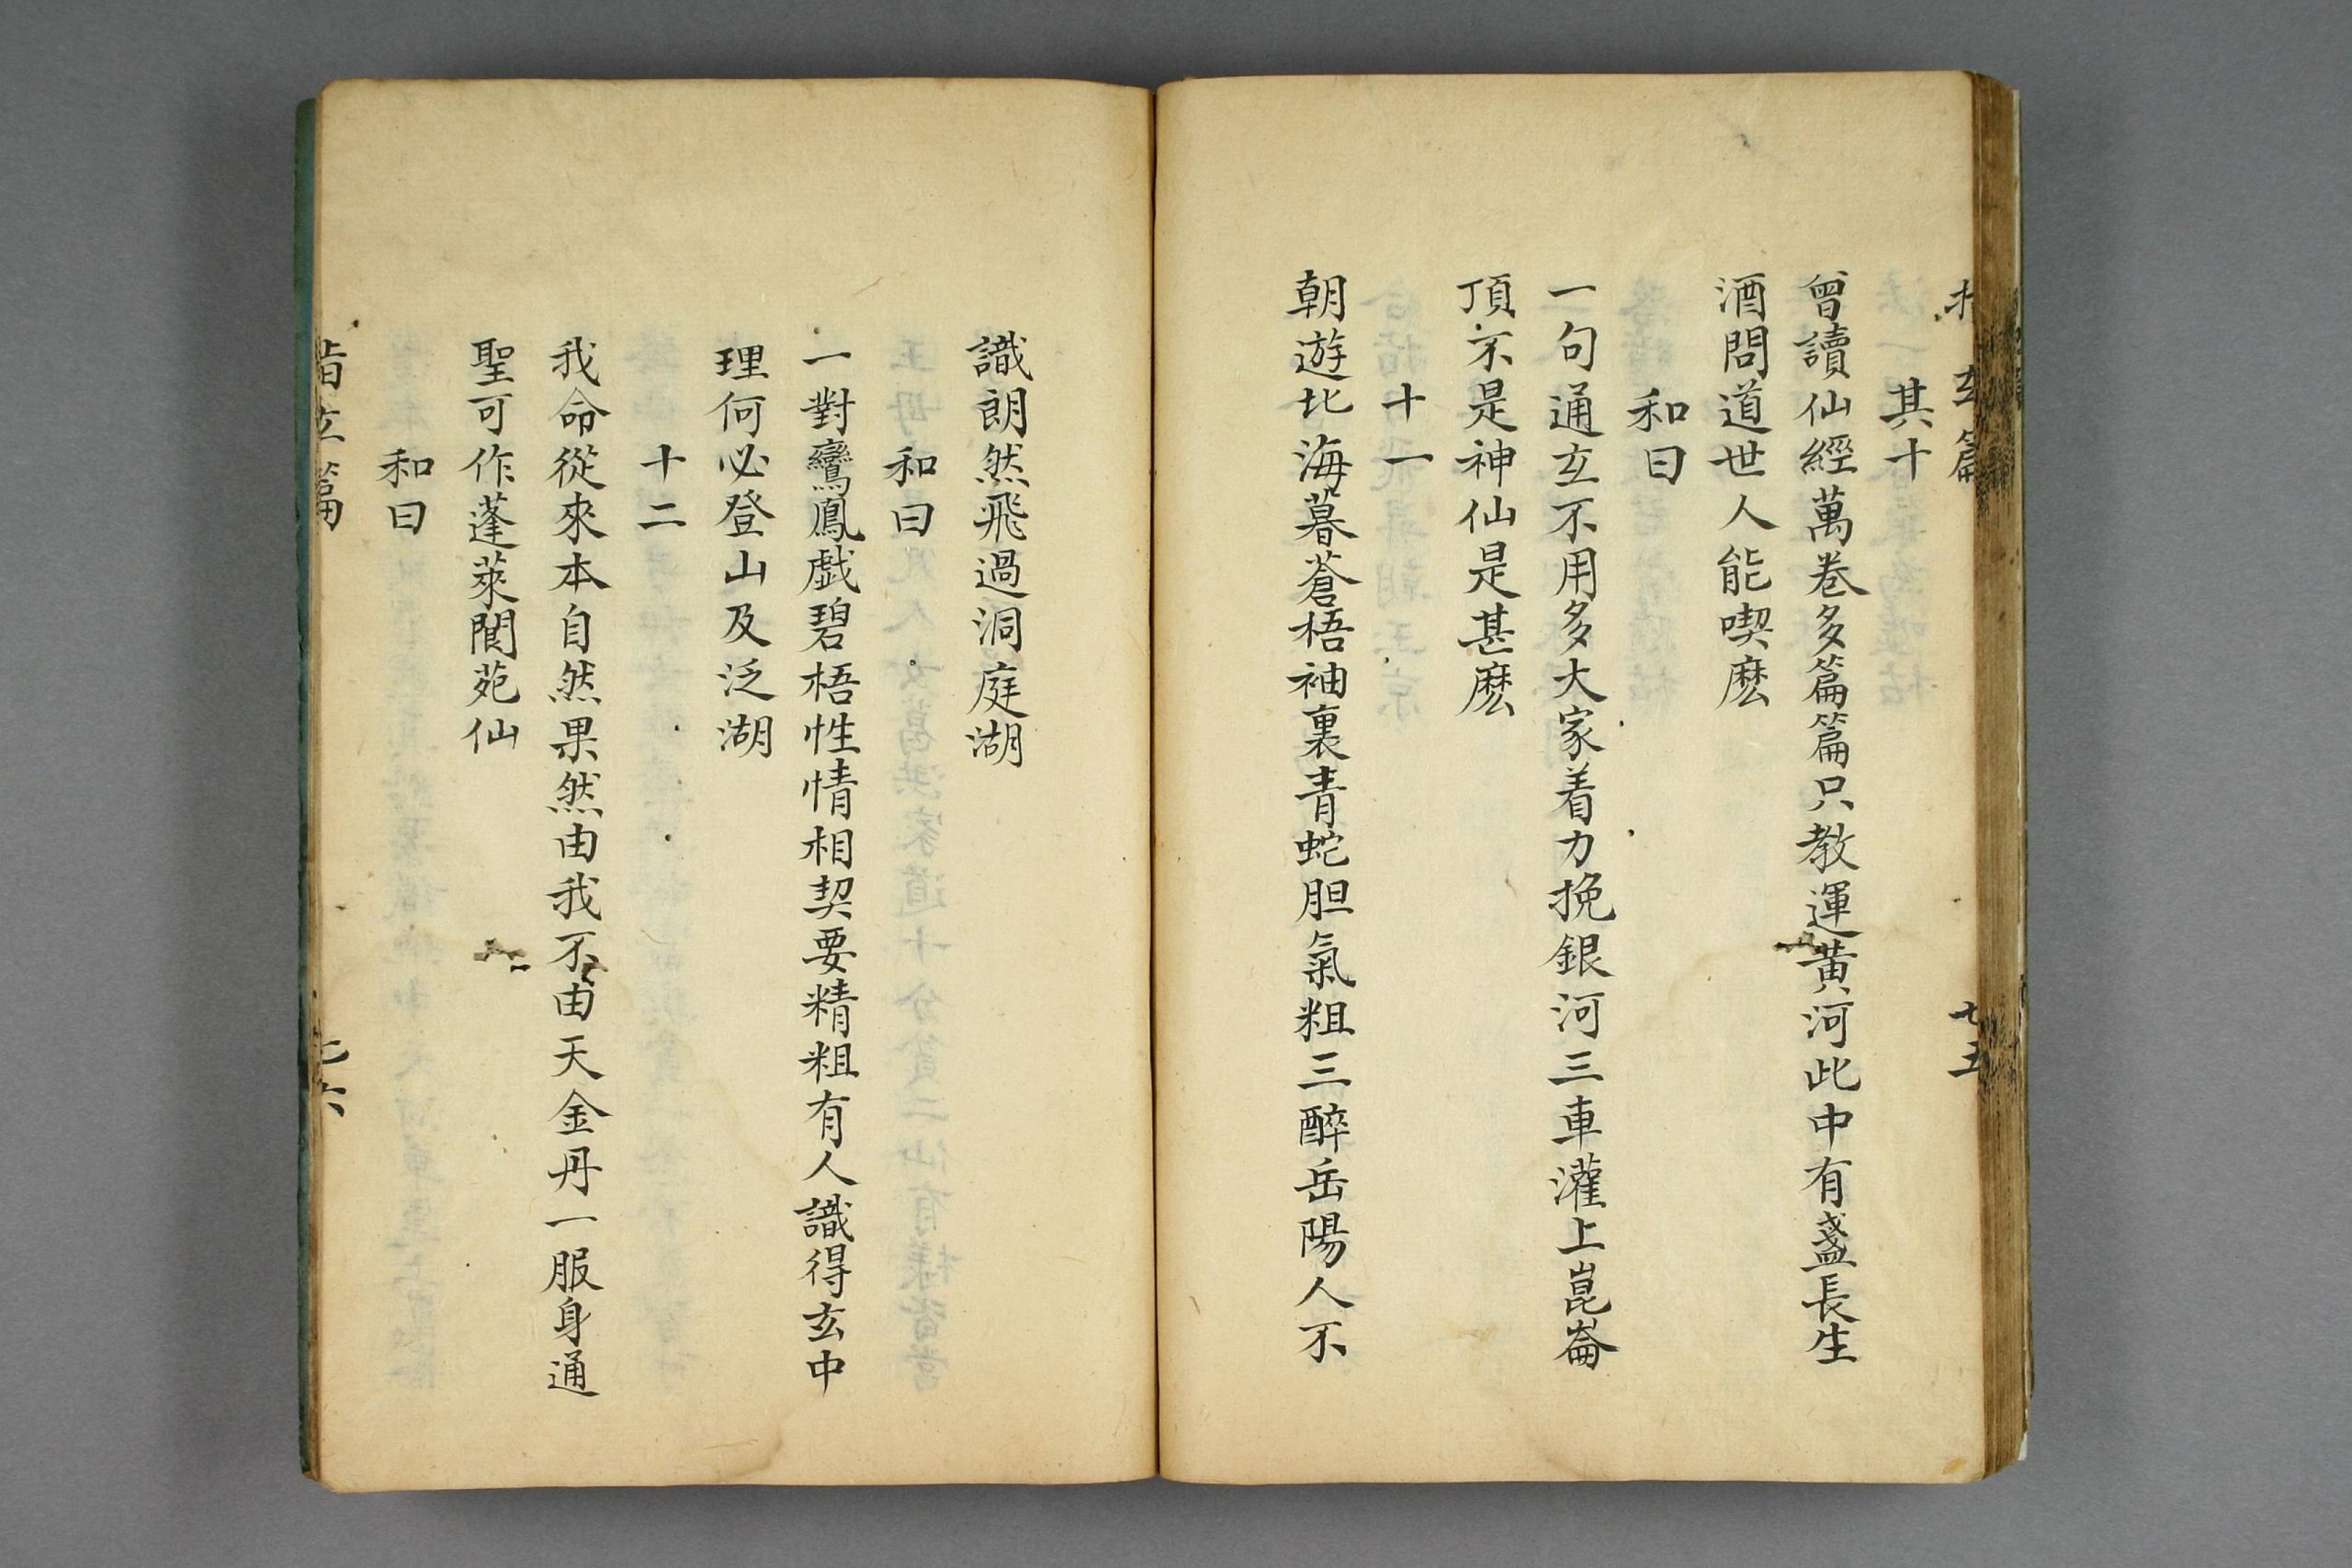 指玄篇 七五
其十
曾讀仙經萬卷多篇篇只教運黃河此中有盞長生
酒問道世人能喫麽
和曰
一句通玄不用多大家着力挽銀河三車灌上崑崙
頂不是神仙是甚麽
十一
朝遊北海暮蒼梧袖裏青蛇胆氣粗三醉岳陽人不
識朗然飛過洞庭湖
和曰
一對鸞鳳戲碧梧性情相契要精粗有人識得玄中
理何必登山及泛湖
十二
我命從來本自然果然由我不由天金丹一服身通
聖可作蓬萊閬苑仙
和曰
指玄篇 七六